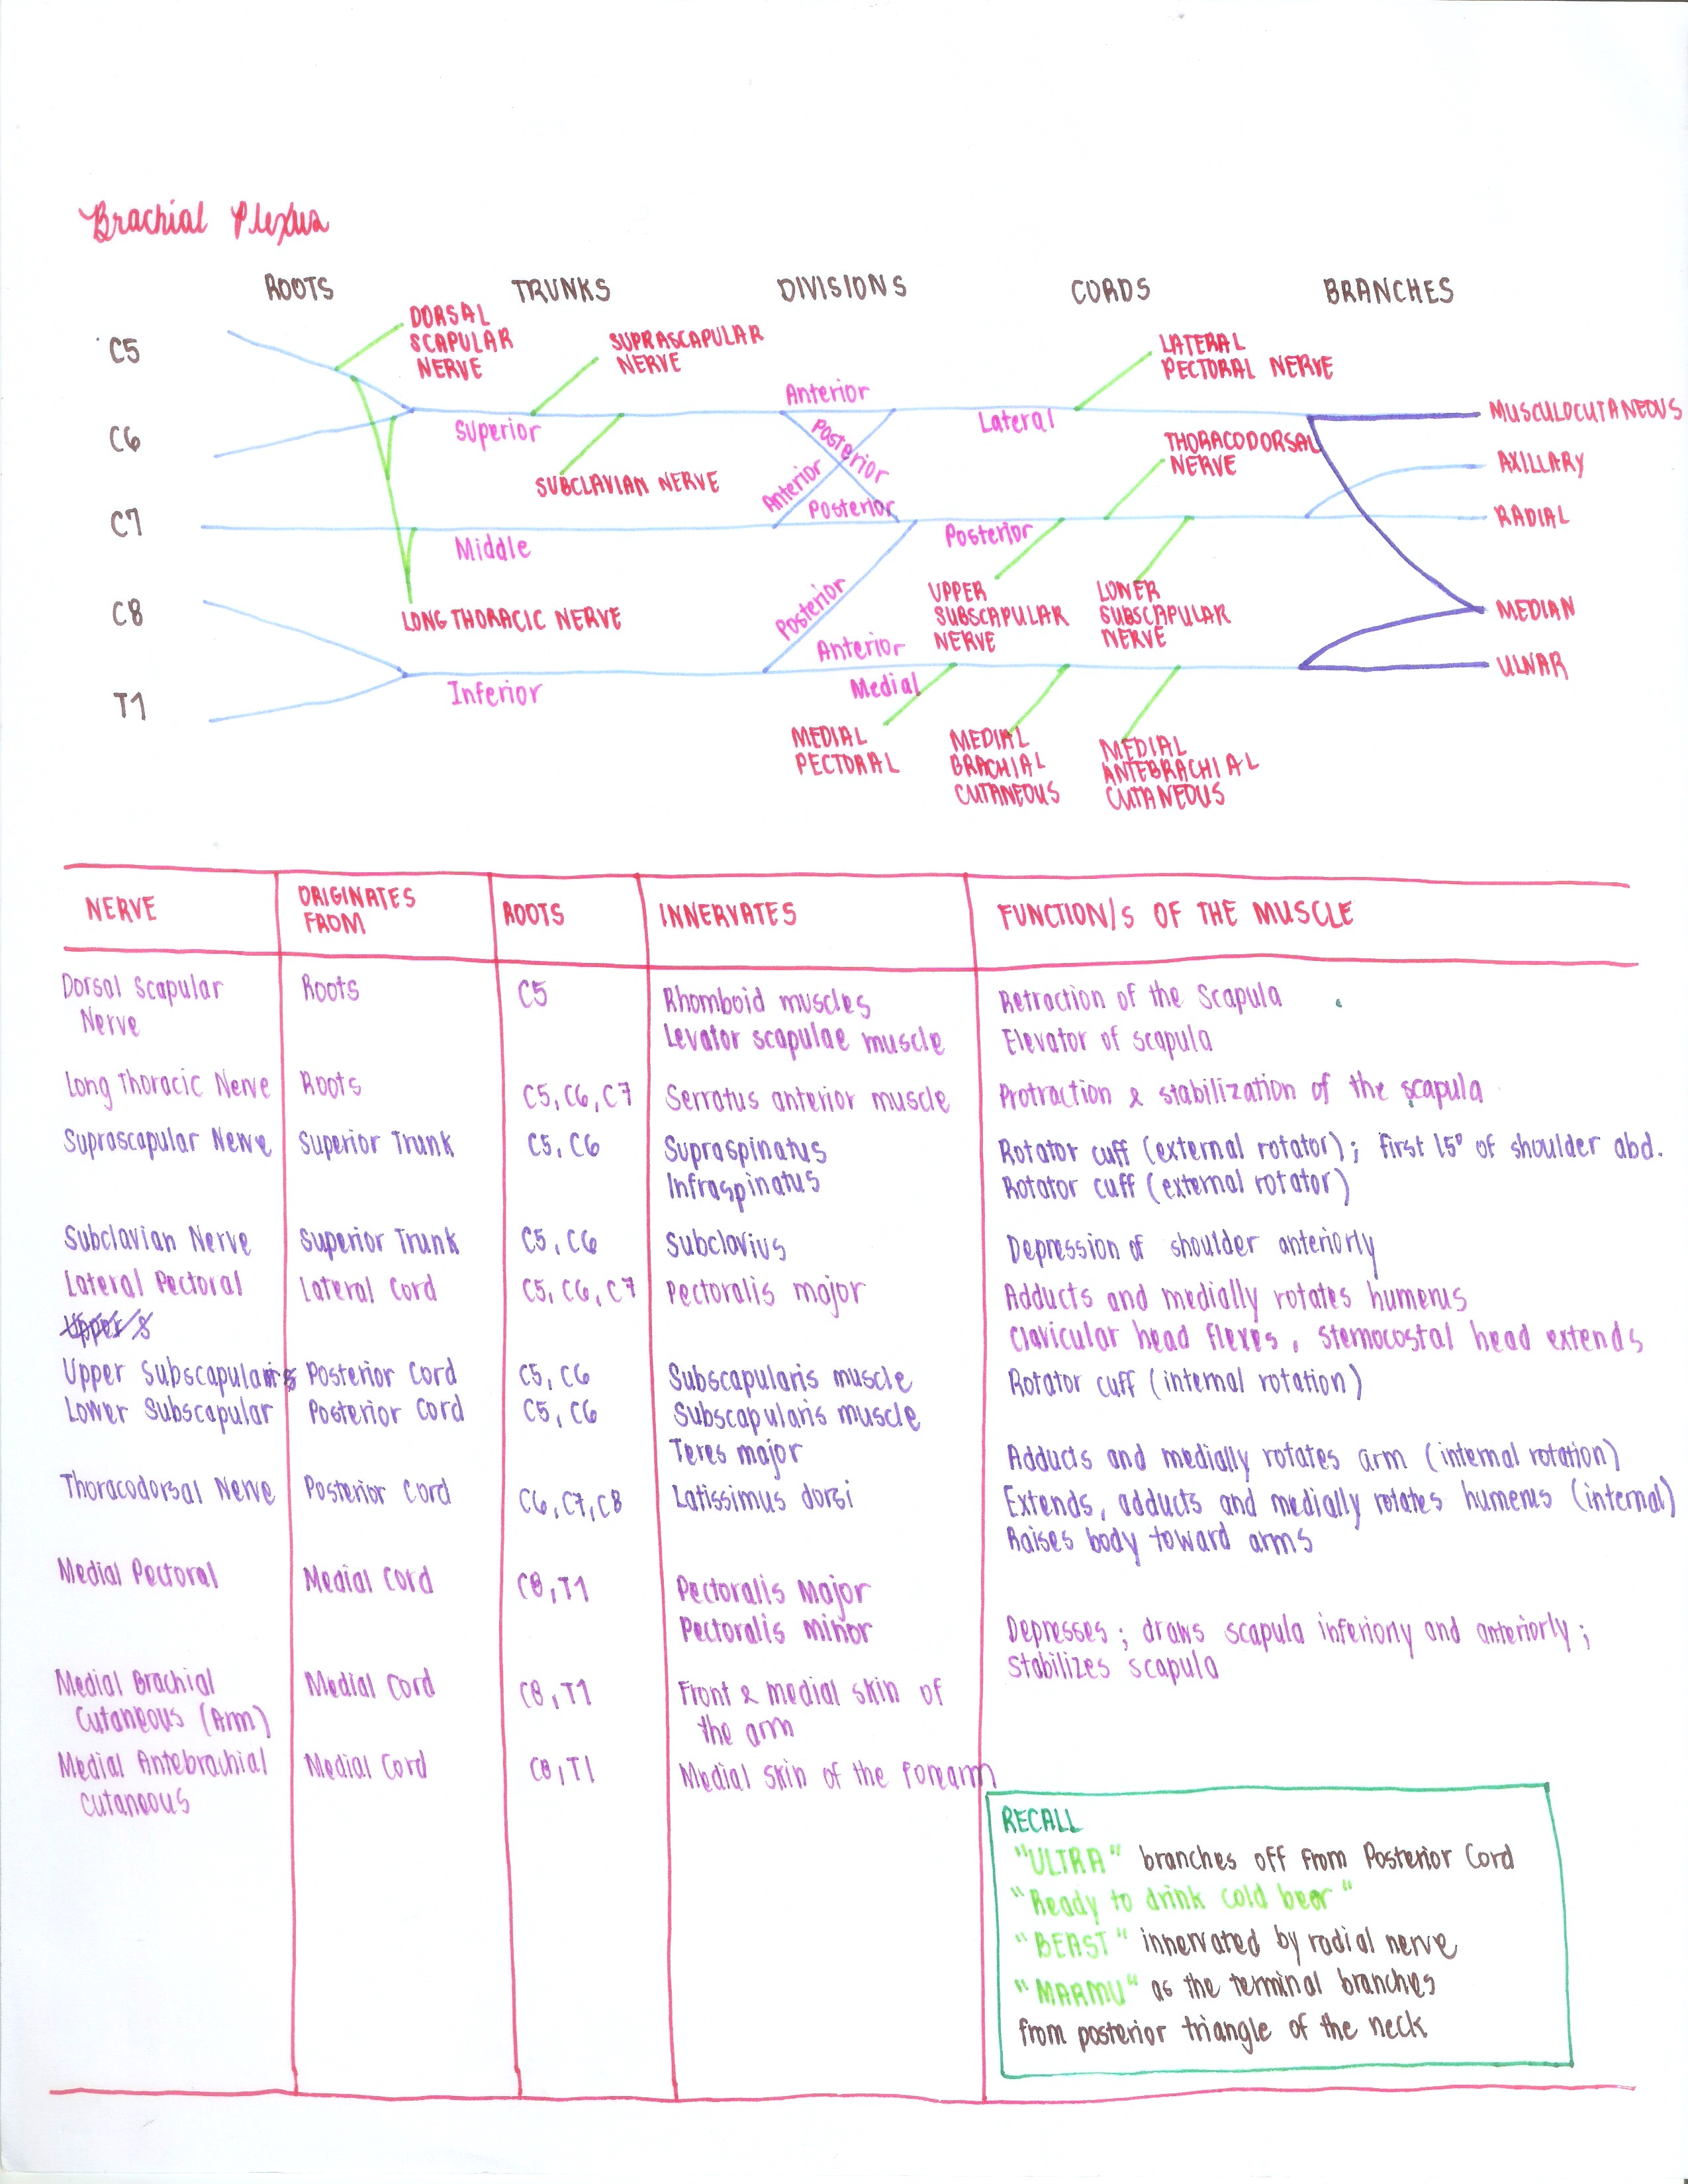 Brachial Plexus
ROOTS TRUNKS DIVISIONS CORDS BRANCHES
C5
C6
C7
C8
T1
DORSAL
SCAPULAR
NERVE
SUPRASCAPULAR
NERVE
LATERAL
PECTORAL NERVE
Anterior
Superior
Posterior
Lateral
MUSCULOCUTANEOUS
SUBCLAVIAN NERVE
Anterior
THORACODORSAL
NERVE
AXILLARY
Posterior
Middle
Posterior
RADIAL
LONG THORACIC NERVE
Posterior
UPPER
SUBSCAPULAR
NERVE
LONER
SUBSCAPULAR
NERVE
MEDIAN
Anterior
Inferior
Medial
ULNAR
MEDIAL
PECTORAL
MEDIAL
BRACHIAL
CUTANEOUS
MEDIAL
ANTEBRACHIAL
CUTANEOUS
NERVE ORIGINATES FROM ROOTS INNERVATES FUNCTION/S OF THE MUSCLE
Dorsal Scapular Roots C5 Rhomboid muscles Retraction of the Scapula
Nerve Levator scapulae muscle Elevator of scapula
Long Thoracic Nerve Roots C5, C6, C7 Serratus anterior muscle Protraction & stabilization of the scapula
Suprascapular Nerve Superior Trunk C5, C6 Supraspinatus Rotator cuff (external rotator); First 15° of shoulder abd.
Infraspinatus Rotator cuff (external rotator)
Subclavian Nerve Superior Trunk C5, C6 Subclavius Depression of shoulder anteriorly
Lateral Pectoral Lateral Cord C5, C6, C7 Pectoralis major Adducts and medially rotates humerus
Upper S Clavicular head flexes, sternocostal head extends
Upper Subscapularis Posterior Cord C5, C6 Subscapularis muscle Rotator cuff (internal rotation)
Lower Subscapular Posterior Cord C5, C6 Subscapularis muscle
Teres major Adducts and medially rotates arm (internal rotation)
Thoracodorsal Nerve Posterior Cord C6, C7, C8 Latissimus dorsi Extends, adducts and medially rotates humerus (internal)
Raises body toward arms
Medial Pectoral Medial Cord C8, T1 Pectoralis Major
Pectoralis minor Depresses; draws scapula inferiorly and anteriorly;
stabilizes scapula
Medial Brachial Medial Cord C8, T1 Front & medial skin of
Cutaneous (Arm) the arm
Medial Antebrachial Medial Cord C8, T1 Medial skin of the forearm
cutaneous
RECALL
"ULTRA" branches off from Posterior Cord
"Ready to drink cold beer"
"BEAST" innervated by radial nerve
"MARMU" as the terminal branches
from posterior triangle of the neck